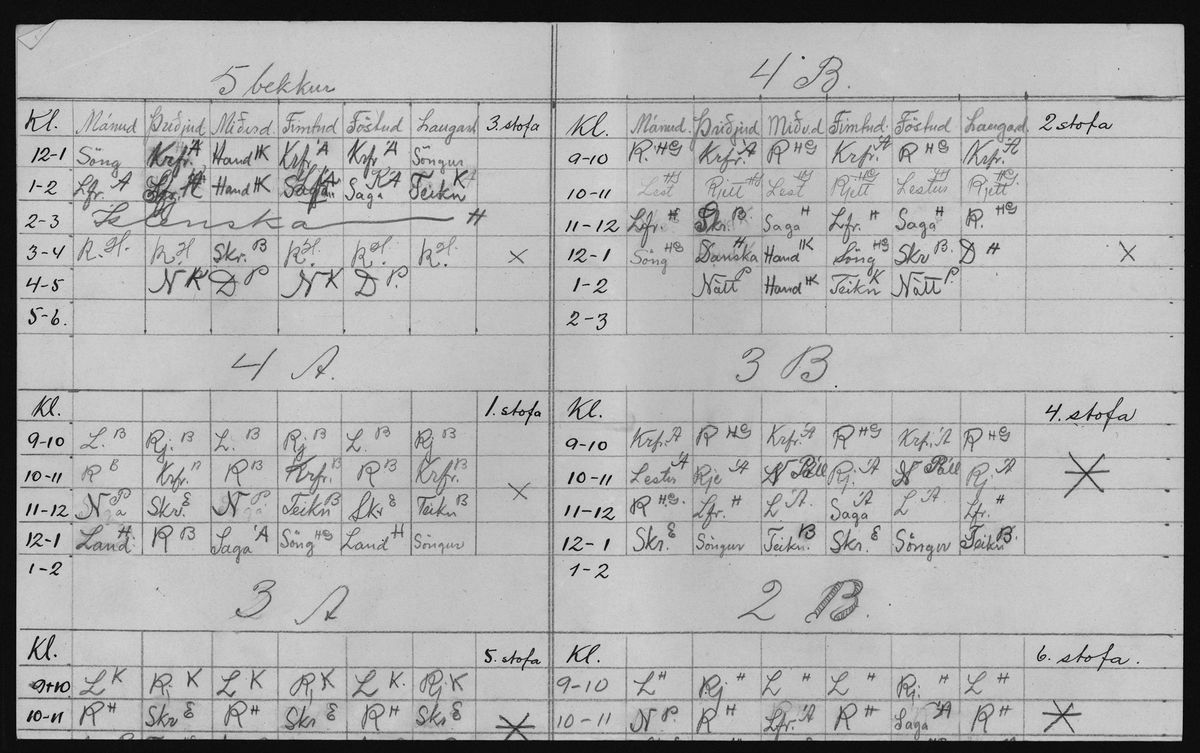 5 bekkur
Kl. Mánud Þriðjud Miðvd Fimtud Föstud Laugard 3. stofa
12-1 Söng Krfr.Á Hand IK Krfr Á Krfr Á Söngur
1-2 Lfr. Á Hand IK Saga K Á Teikn K
2-3 Íslenska H
3-4 R.H. R.H. Skr. B R.H. R.H. R.H. ×
4-5 N K D P N K D P.
5-6.
4 B.
Kl. Mánud. Þriðjud. Miðv.d Fimtud. Föstud Laugard. 2 stofa
9-10 R. HG Krfr. Á R HG Krfr. Á R HG Krfr. Á
10-11 Lest HG Rjett HG Lest HG Rjett HG Lestur HG Rjett HG.
11-12 Lfr. H Skr. B. Saga H Lfr. H Saga H R. HG
12-1 Söng HG Danska H Hand IK Söng HG Skr B. D H ×
1-2 Nátt P Hand IK Teikn K Nátt P.
2-3
4 A.
Kl. 1. stofa
9-10 L. B Rj. B L. B Rj B L. B Rj B
10-11 R B Krfr. B R B Krfr. B R B Krfr. B ×
11-12 N P Skr. E N P Teikn B Skr E Teikn B
12-1 Land. H R B Saga Á Söng HG Land H Söngur
1-2
3 B
Kl. 4. stofa
9-10 Krfr. Á R HG Krfr. Á R HG Krfr. Á R HG
10-11 Lestur Á Rje Á N Páll Rj. Á N Páll Rj. Á
11-12 R HG. Lfr. H L Á Saga Á L Á Lfr. H
12-1 Skr. E Söngur Teikn. B Skr. E Söngur Teikn B.
1-2
3 A
Kl. 5. stofa
9-10 L K Rj. K L K Rj K L K. Rj K
10-11 R H Skr E R H Skr E R H Skr E
2 B.
Kl. 6. stofa.
9-10 L H Rj. H L H L H Rj. H L H
10-11 N P. R H Lfr. Á R H Saga Á R H